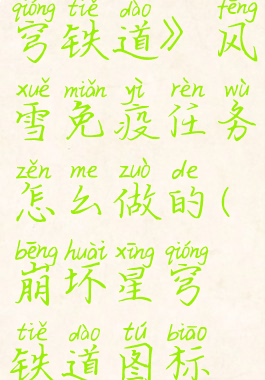 qióng tiě dào fēng
穹铁道》风
xuě miǎn yì rèn wù
雪免疫任务
zěn me zuò de
怎么做的(
bēng huài xīng qióng
崩坏星穹
tiě dào tú biāo
铁道图标